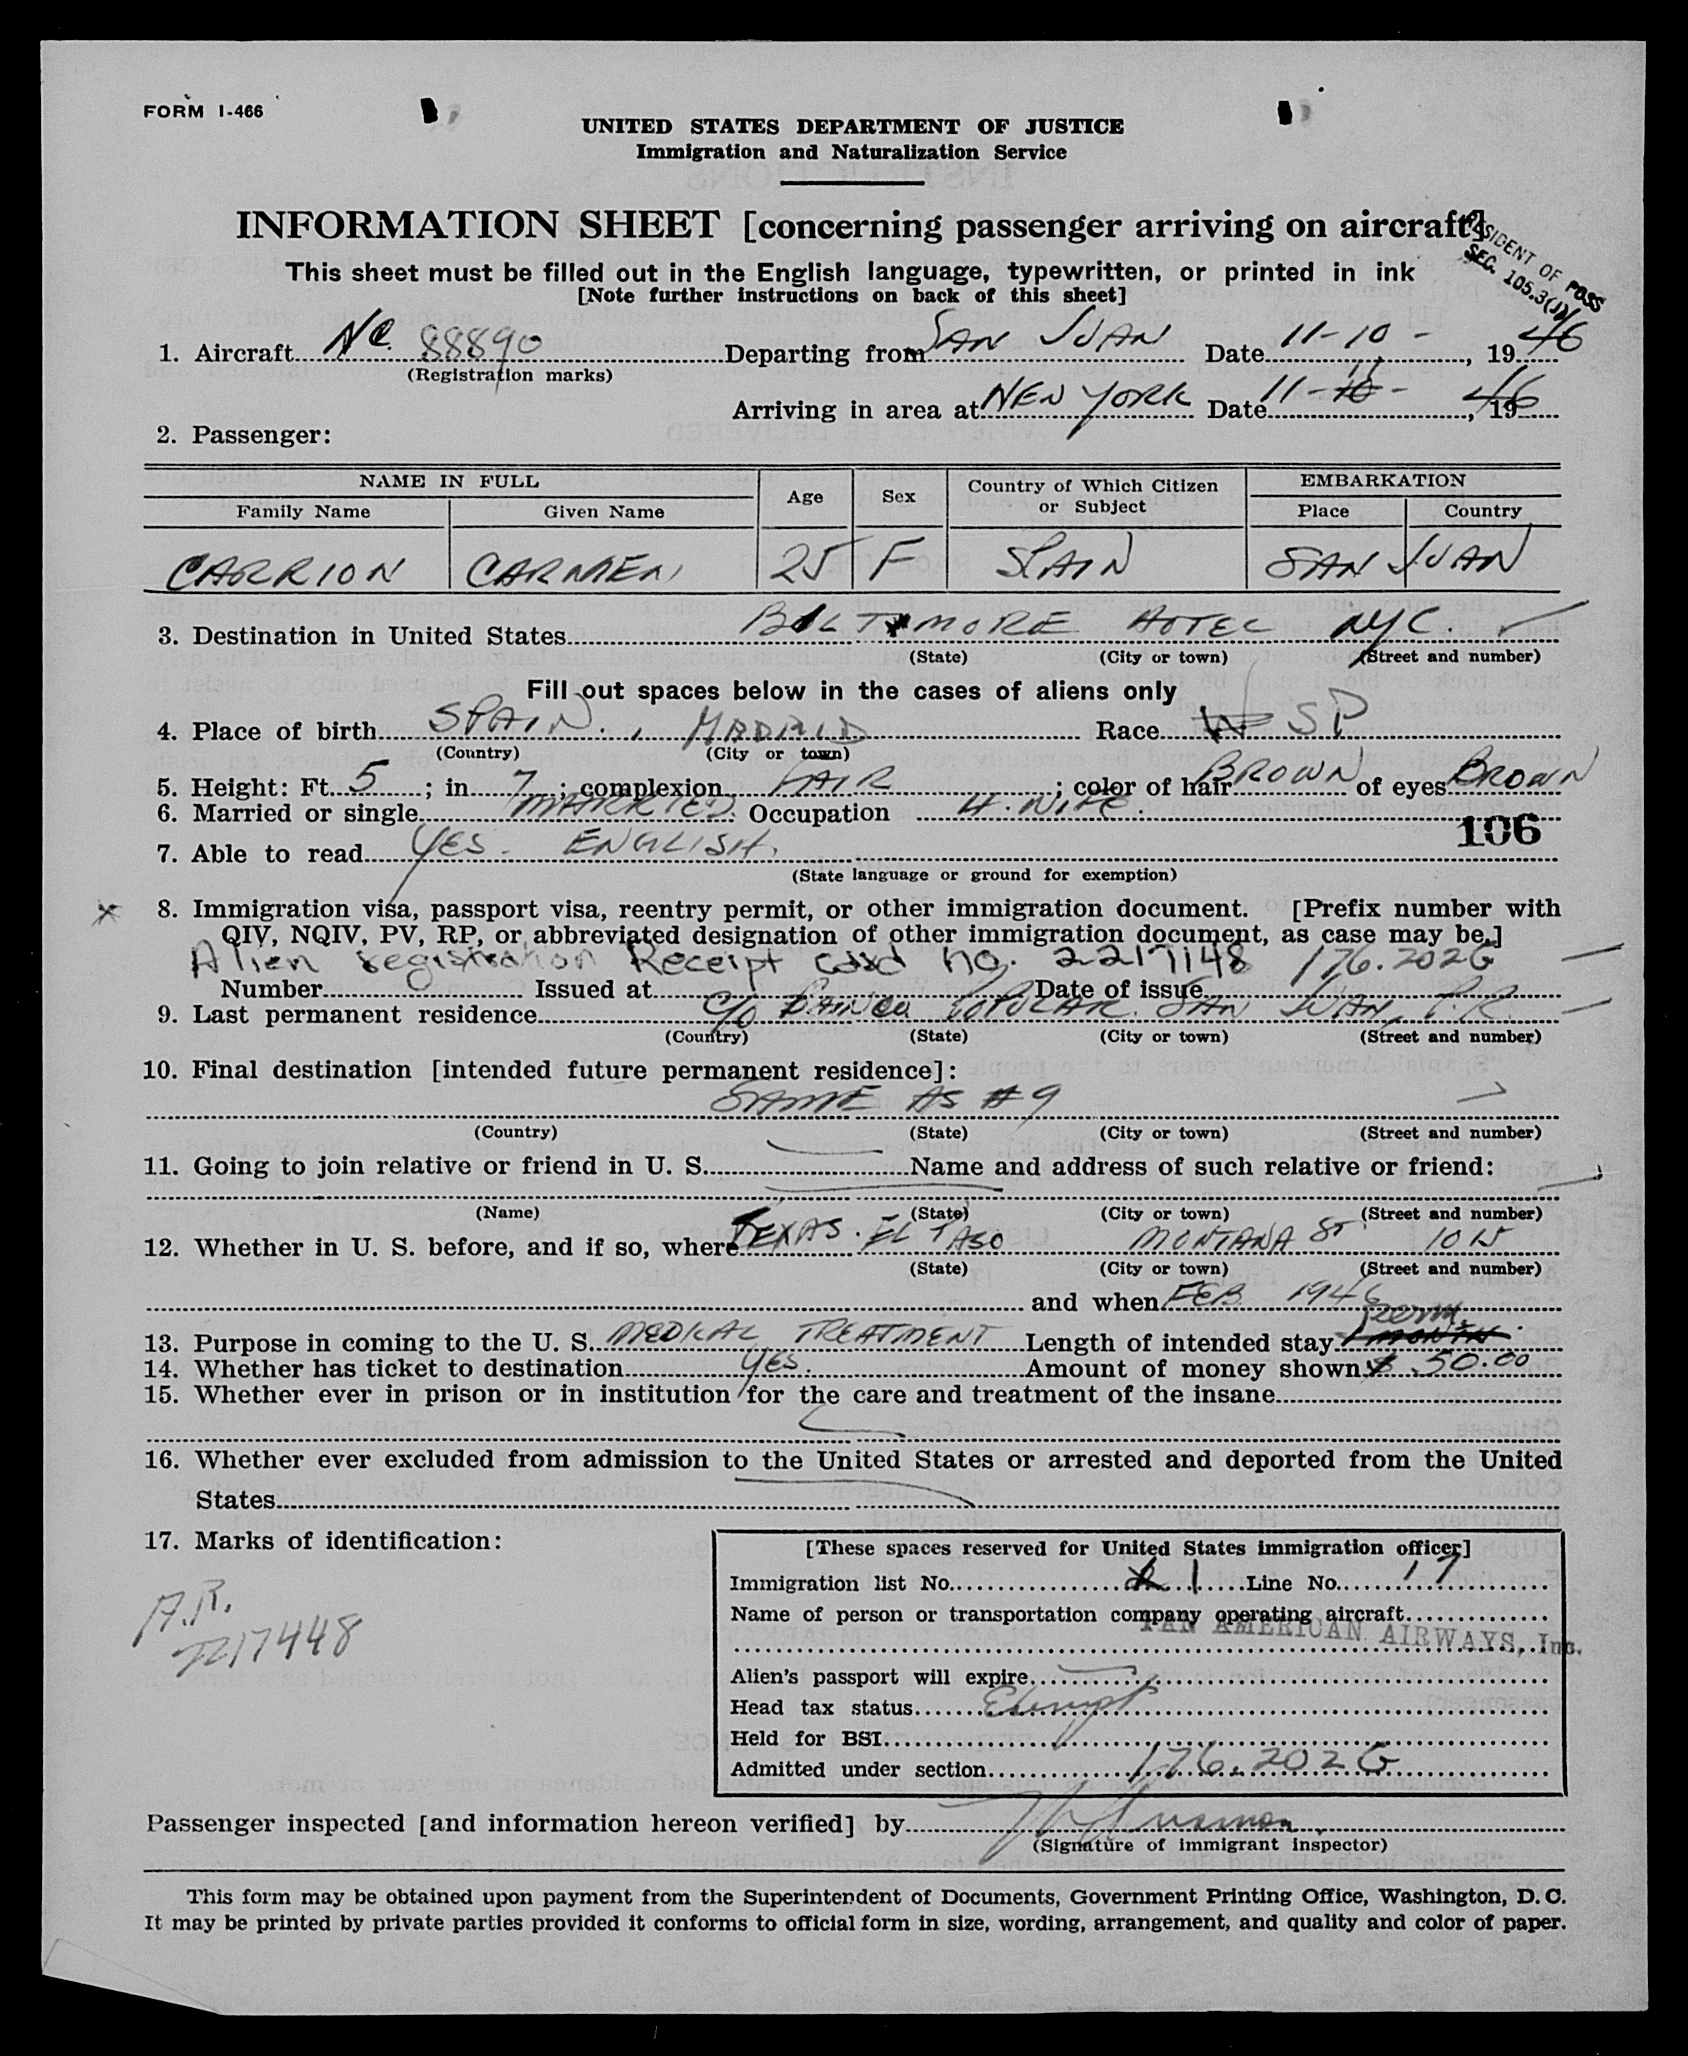 FORM I-466
UNITED STATES DEPARTMENT OF JUSTICE
Immigration and Naturalization Service
INFORMATION SHEET [concerning passenger arriving on aircraft]
RESIDENT OF POSS
SEC. 105.3(J)
This sheet must be filled out in the English language, typewritten, or printed in ink
[Note further instructions on back of this sheet]
1. Aircraft NC. 88890 Departing from SAN JUAN Date 11-10-, 1946
(Registration marks)
Arriving in area at NEW YORK Date 11-11-, 1946
2. Passenger:
NAME IN FULL Age Sex Country of Which Citizen or Subject EMBARKATION
Family Name Given Name Place Country
CARRION CARMEN 25 F SPAIN SAN JUAN
3. Destination in United States BILTMORE HOTEL NYC.
(State) (City or town) (Street and number)
Fill out spaces below in the cases of aliens only
4. Place of birth SPAIN, MADRID Race W SP
(Country) (City or town)
5. Height: Ft. 5; in 7; complexion FAIR; color of hair BROWN of eyes BROWN
6. Married or single MARRIED Occupation H. WIFE.
106
7. Able to read YES - ENGLISH.
(State language or ground for exemption)
x 8. Immigration visa, passport visa, reentry permit, or other immigration document. [Prefix number with
QIV, NQIV, PV, RP, or abbreviated designation of other immigration document, as case may be.]
Alien registration Receipt card no. 2217148 176.202G
Number Issued at Date of issue
9. Last permanent residence C/O BANCO POPULAR. SAN JUAN, P.R.
(Country) (State) (City or town) (Street and number)
10. Final destination [intended future permanent residence]:
SAME AS #9
(Country) (State) (City or town) (Street and number)
11. Going to join relative or friend in U. S. Name and address of such relative or friend:
(Name) (State) (City or town) (Street and number)
12. Whether in U. S. before, and if so, where TEXAS. EL PASO MONTANA ST. 1015
(State) (City or town) (Street and number)
and when FEB 1946
13. Purpose in coming to the U. S. MEDICAL TREATMENT Length of intended stay 1 MONTH perm.
14. Whether has ticket to destination YES. Amount of money shown $ 50.00
15. Whether ever in prison or in institution for the care and treatment of the insane
16. Whether ever excluded from admission to the United States or arrested and deported from the United
States
17. Marks of identification:
A.R.
2217448
[These spaces reserved for United States immigration officer]
Immigration list No. 1 Line No. 17
Name of person or transportation company operating aircraft
PAN AMERICAN AIRWAYS, Inc.
Alien's passport will expire
Head tax status Exempt
Held for BSI
Admitted under section 176.202G
Passenger inspected [and information hereon verified] by
(Signature of immigrant inspector)
This form may be obtained upon payment from the Superintendent of Documents, Government Printing Office, Washington, D. C.
It may be printed by private parties provided it conforms to official form in size, wording, arrangement, and quality and color of paper.